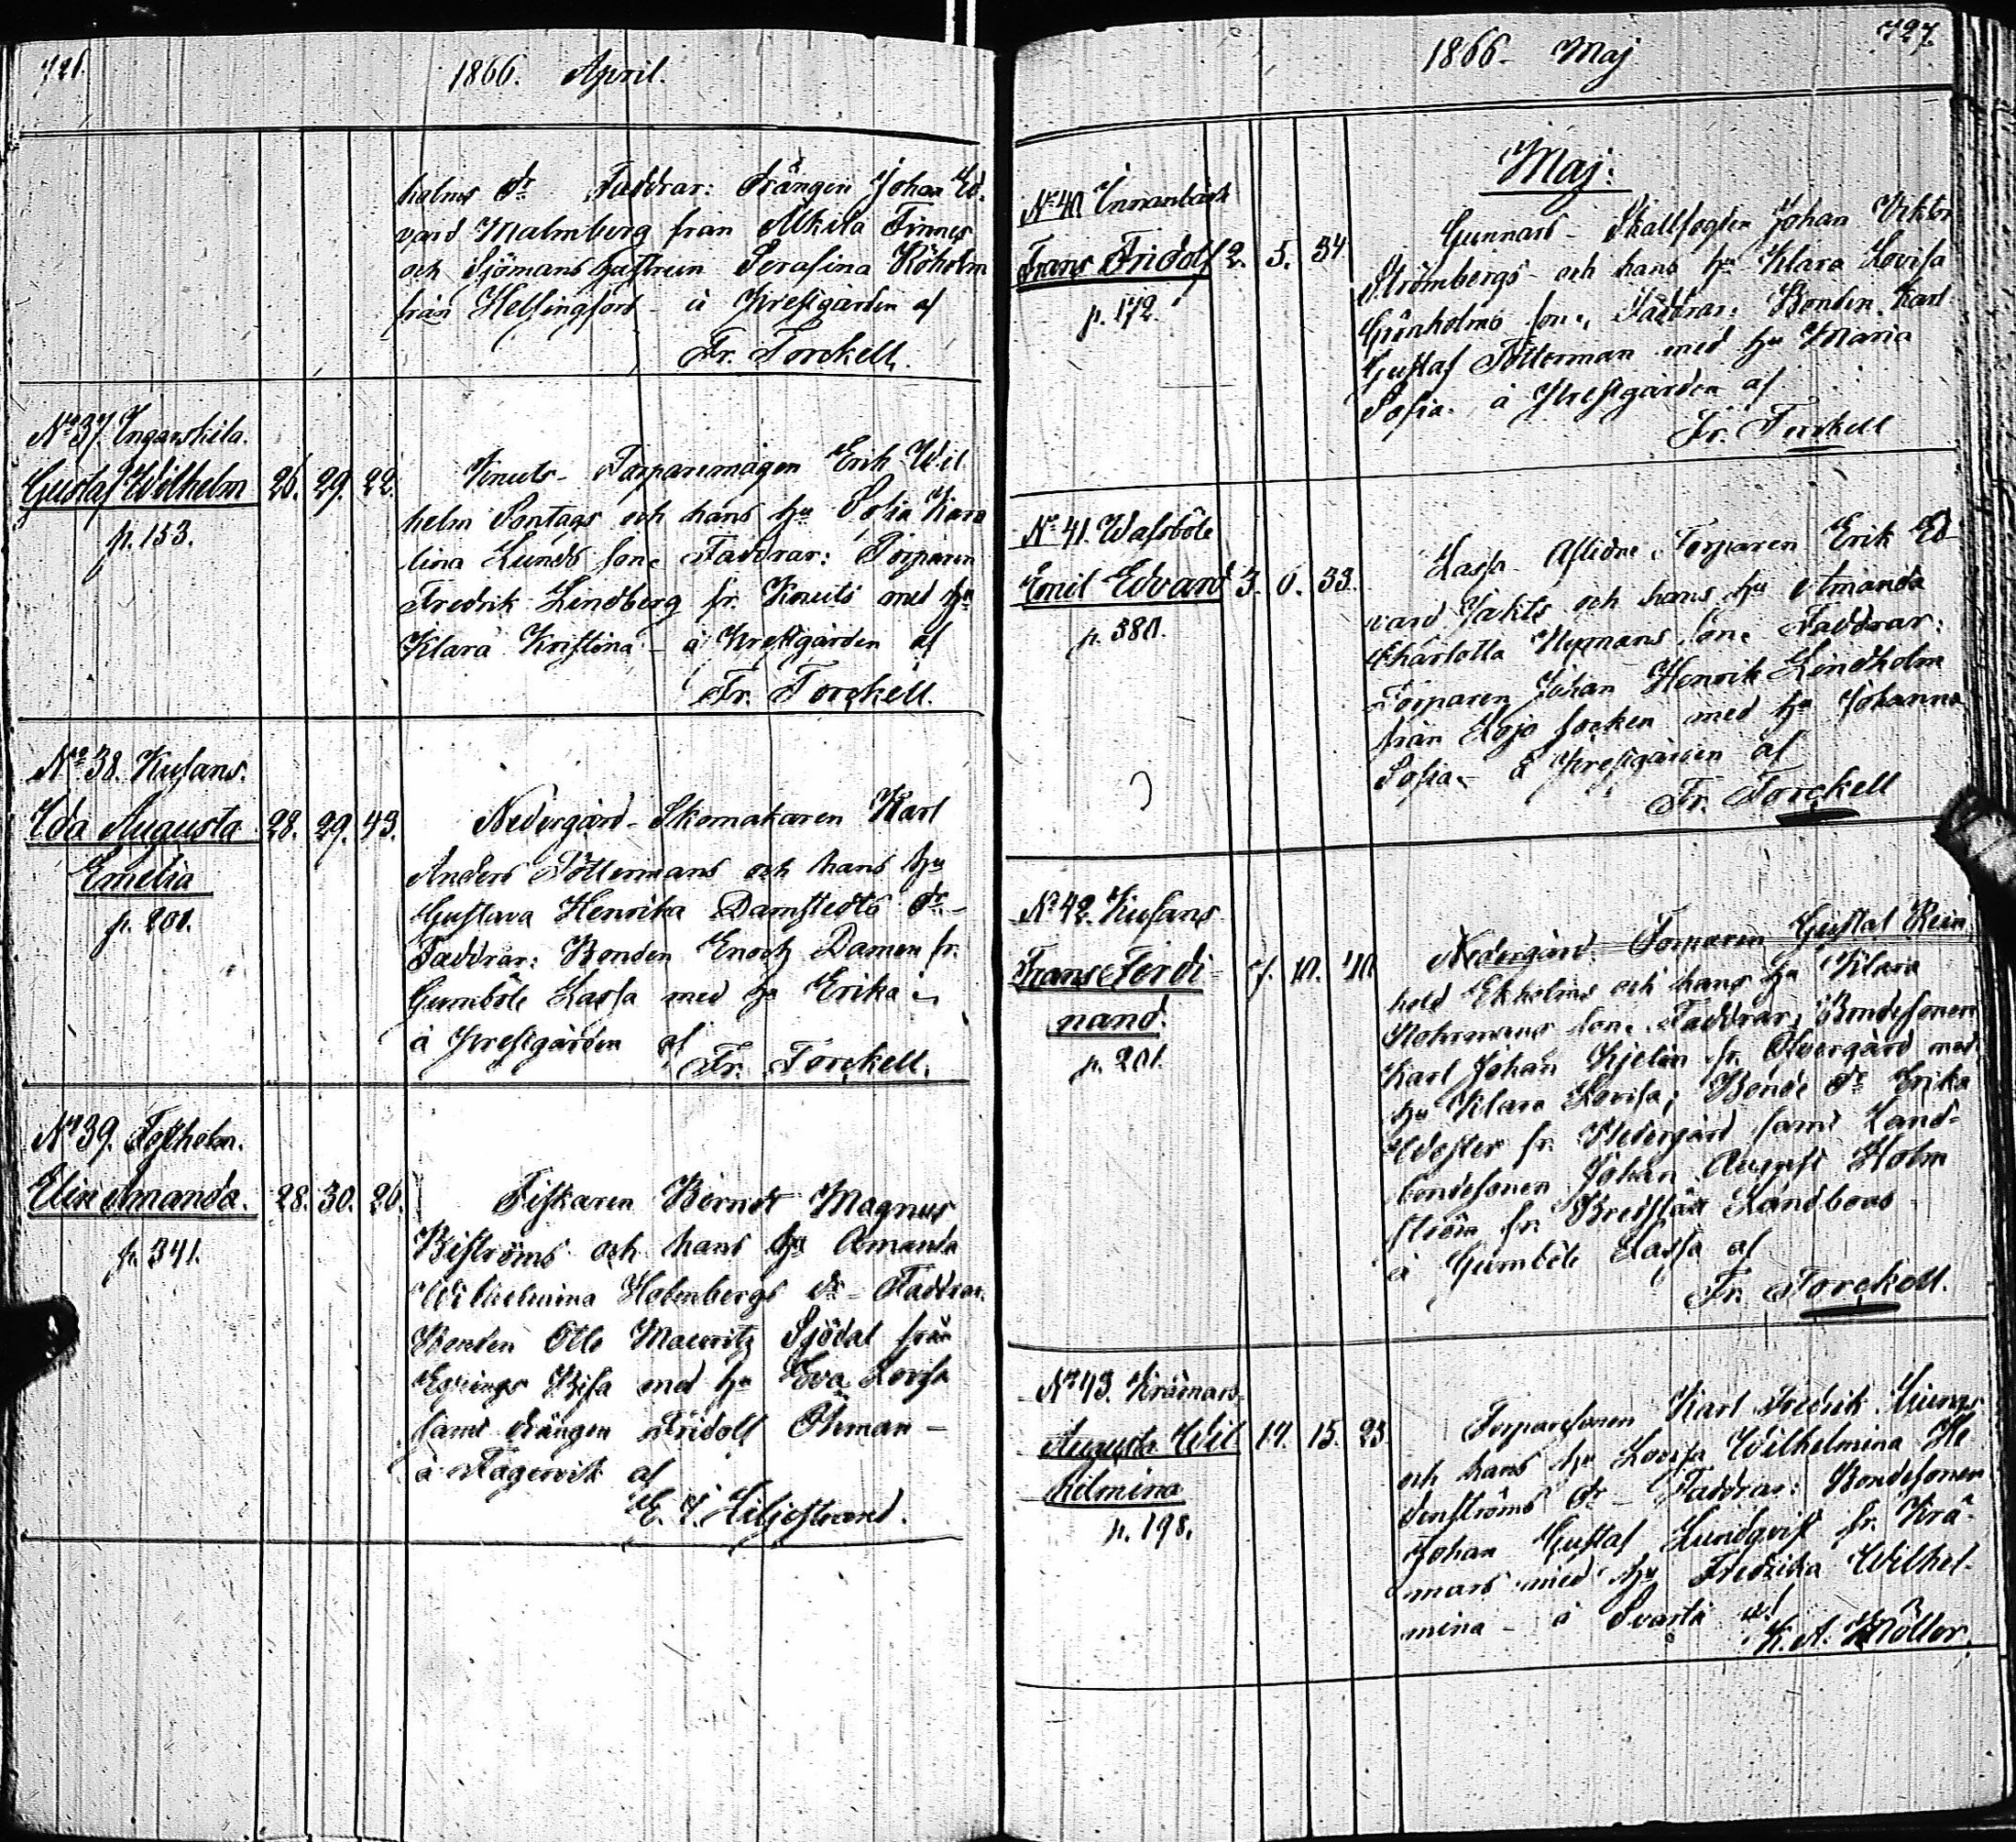 726.
1866. April.
holms dr Faddrar: Drängen Johan Ed-
vard Malmberg från Alkila Finnes
och Sjömans hustrun Serafina Röholm
från Helsingfors - å Prestgården af
Fr. Torckell.
No 37. Ingarskila.
Gustaf Wilhelm 26. 29. 22.
p. 153.
Knuts - Torparemågen Erik Wil
helm Sontags och hans hu Sofia Karo
lina Lunds son. Faddrar: Torparen
Fredrik Lindberg fr. Knuts med hu
Klara Kristina - å Prestgården af
Fr. Torckell.
No 38. Kusans.
Ida Augusta 28. 29. 43.
Emelia
p. 201.
Nedergård - Skomakaren Karl
Anders Töttermans och hans hu
Gustava Henrika Damstedts dr -
Faddrar: Bonden Enoch Damen fr.
Gumböle Lassa med hu Erika -
å Prestgården af
Fr. Torckell.
No 39. Fastholm.
Elin Amanda. 28. 30. 26.
p. 341.
Fiskaren Berndt Magnus
Biströms och hans hu Amanda
Wilhelmina Holmbergs dr - Faddrar.
Bonden Otto Mauritz Sjödal från
Bisa med hu Eva Lovisa
samt drängen Fridolf Öhman -
å Fagervik af
E. V. Liljestrand.
727.
1866 - Maj
Maj:
No 40. Innanbäck
Frans Fridolf 2. 5. 34.
p. 172.
Gunnars - Skallfogden Johan Viktor
Strömbergs och hans hu Klara Lovisa
Grönholms son. Faddrar: Bonden Karl
Gustaf Tötterman med hu Maria
Sofia. å Prestgården af
Fr. Torckell
No 41. Walsböle
Emil Edvard 3. 6. 33.
p. 380.
Lassa - Aflidne Torparen Erik Ed-
vard och hans hu Amanda
Charlotta Nymans son. Faddrar:
Torparen Johan Henrik Lindholm
från Lojo socken med hu Johanna
Sofia - å Prestgården af
Fr. Torckell
No 42. Kusans
Frans Ferdi- 7. 10. 40
nand.
p. 201.
Nedergård. Torparen Gustaf Rein
hold Ekholms och hans hu Klara
son. Faddrar: Bondesonen
Karl Johan Kjelin fr. Öfvergård med
hu Klara Lovisa; Bonde dr Erika
Wester fr. Nedergård samt Land-
bondesonen Johan August Holm
ström fr. Bredslätt Landbons -
å Gumböle Lassa af
Fr. Torckell.
No 43. Krämars
Augusta Wil 14. 15. 23
helmina
p. 198.
Torparesonen Karl Fredrik
och hans hu Lovisa Wilhelmina He
denströms dr - Faddrar: Bondesonen
Johan Gustaf Lundqvist fr. Krä-
mars med hu Fredrika Wilhel-
mina - å Svartå af
K. A. Möller.